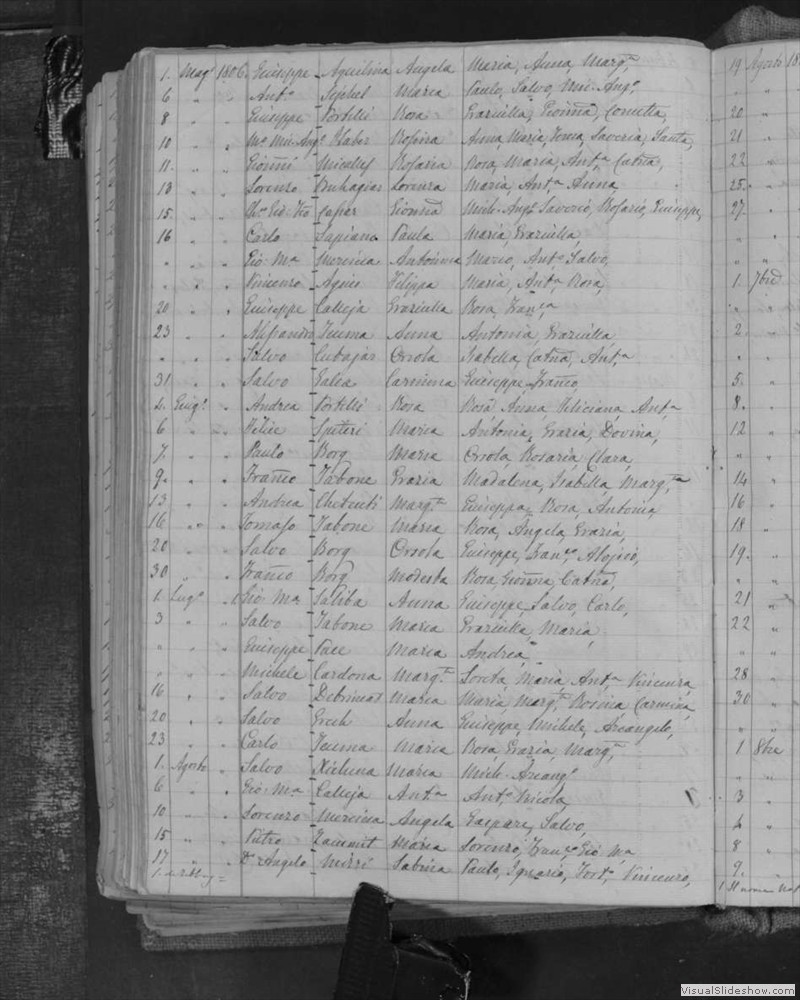 1. Mag.º 1806. Giuseppe Aquilina Angela Maria, Anna, Marg.ta
6 " " Ant.º Maria Paulo, Salvo, Mic: Ang.º
8 " " Giuseppe Portelli Rosa Graziulla, Gionña, Cometta,
10 " " Rosina Anna Maria, Teresa, Saveria, Santa,
11. " " Gionñi Micallef Rosaria Rosa, Maria, Ant.a Catña,
13 " " Lorenzo Buhagiar Lorenza Maria, Ant.a Anna,
15. " " Casiar Gionña Mich: Ang.º Saverio, Rosario, Giuseppe,
16 " " Carlo Sapiano Paula Maria, Graziulla,
" " " Gio: M.a Mercieca Antonina Marco, Ant.º Salvo,
" " " Vincenzo Agius Filippa Maria, Ant.a Rosa,
20 " " Giuseppe Calleja Graziulla Rosa, Fran.ca
23 " " Alessandro Zemma Anna Antonia, Graziulla
" " " Salvo Cutajar Orsola Isabella, Catña, Ant.a
31 " " Salvo Galea Carmina Giuseppe, Franco,
4. Giug.º " Andrea Portelli Rosa Rosa Anna, Feliciana, Ant.a
6 " " Felice Spiteri Maria Antonia, Grazia, Dovina,
7. " " Paulo Borg Maria Orsola, Rosaria, Clara,
9. " " Franco Tabone Grazia Madalena, Isabella, Marg.ta
13 " " Andrea Chetcuti Marg.ta Giuseppa, Rosa, Antonia,
16 " " Tomaso Tabone Maria Rosa, Angela, Grazia,
20 " " Salvo Borg Orsola Giuseppe, Fran.co, Alojsio,
30 " " Franco Borg Modesta Rosa, Gionña, Catña,
1. Lug.º " Gio: Ma Saliba Anna Giuseppe, Salvo, Carlo,
3 " " Salvo Tabone Maria Graziulla, Maria
" " " Giuseppe Pace Maria Andrea,
" " " Michele Cardona Marg.ta Loreta, Maria, Ant.a Vincenza,
16 " " Salvo Debrincat Maria Maria, Marg.ta, Rosina, Carmina,
20 " " Salvo Grech Anna Giuseppe, Michele, Arcangelo,
23 " " Carlo Zemma Maria Rosa, Grazia, Marg.ta,
1. Agosto " Salvo Xicluna Maria Mich: Arcang.º
6 " " Gio: Ma Calleja Ant.a Ant.º Nicola,
10 " " Lorenzo Mercieca Angela Gaspare, Salvo,
15 " " Pietro Zammit Maria Lorenzo, Fran.co, Gio: Ma
17 " " Dr. Angelo Sabina Paulo, Ignazio, Fort., Vincenzo,
19. Agosto 18
" "
20 "
21 "
22 "
25. "
27. "
" "
" "
1 7bre
" "
2 "
" "
5. "
8. "
12 "
" "
14 "
16 "
18 "
19. "
" "
21 "
22 "
28 "
30 "
1 8bre
" "
3 "
4 "
8 "
9. "
VisualSlideshow.com